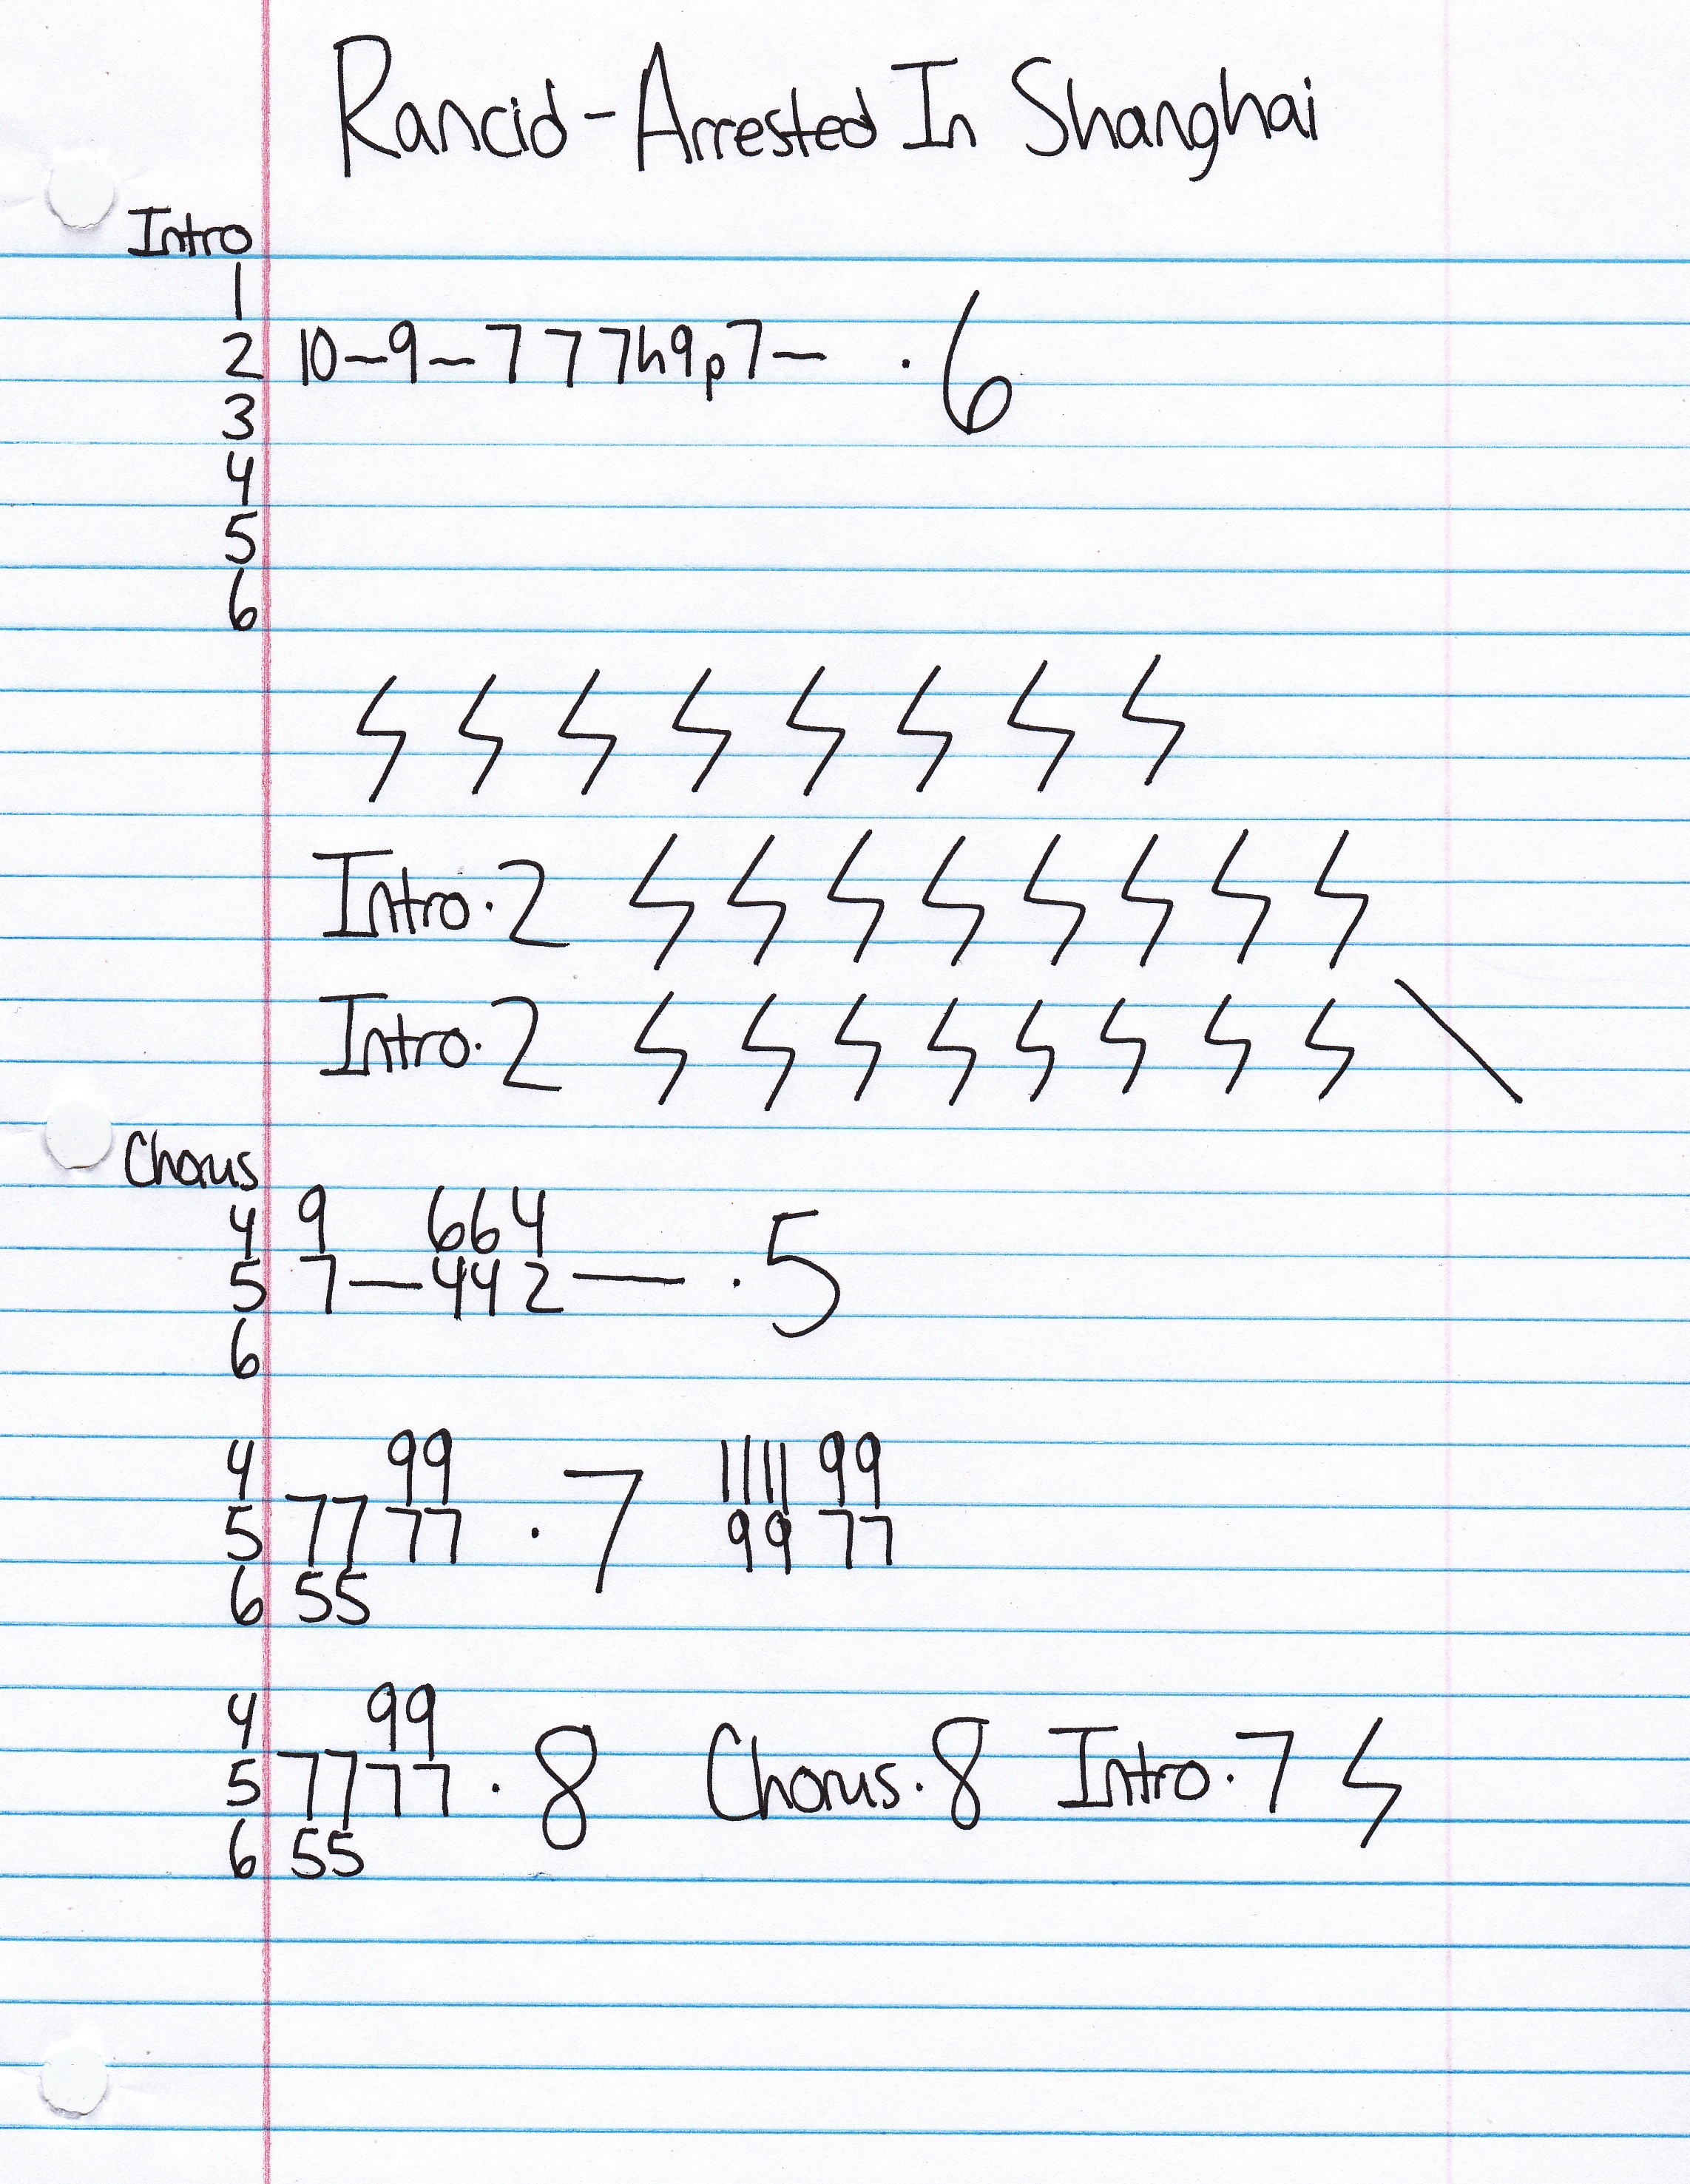 Rancid - Arrested In Shanghai
Intro
1
2 10-9-7 7 7h9p7- . 6
3
4
5
6
Intro.2
Intro.2
Chorus
4 9 664
5 7-442- . 5
6
4 99 1111 99
5 77 77 . 7 99 77
6 55
4 99
5 7777 . 8 Chorus.8 Intro.7
6 55